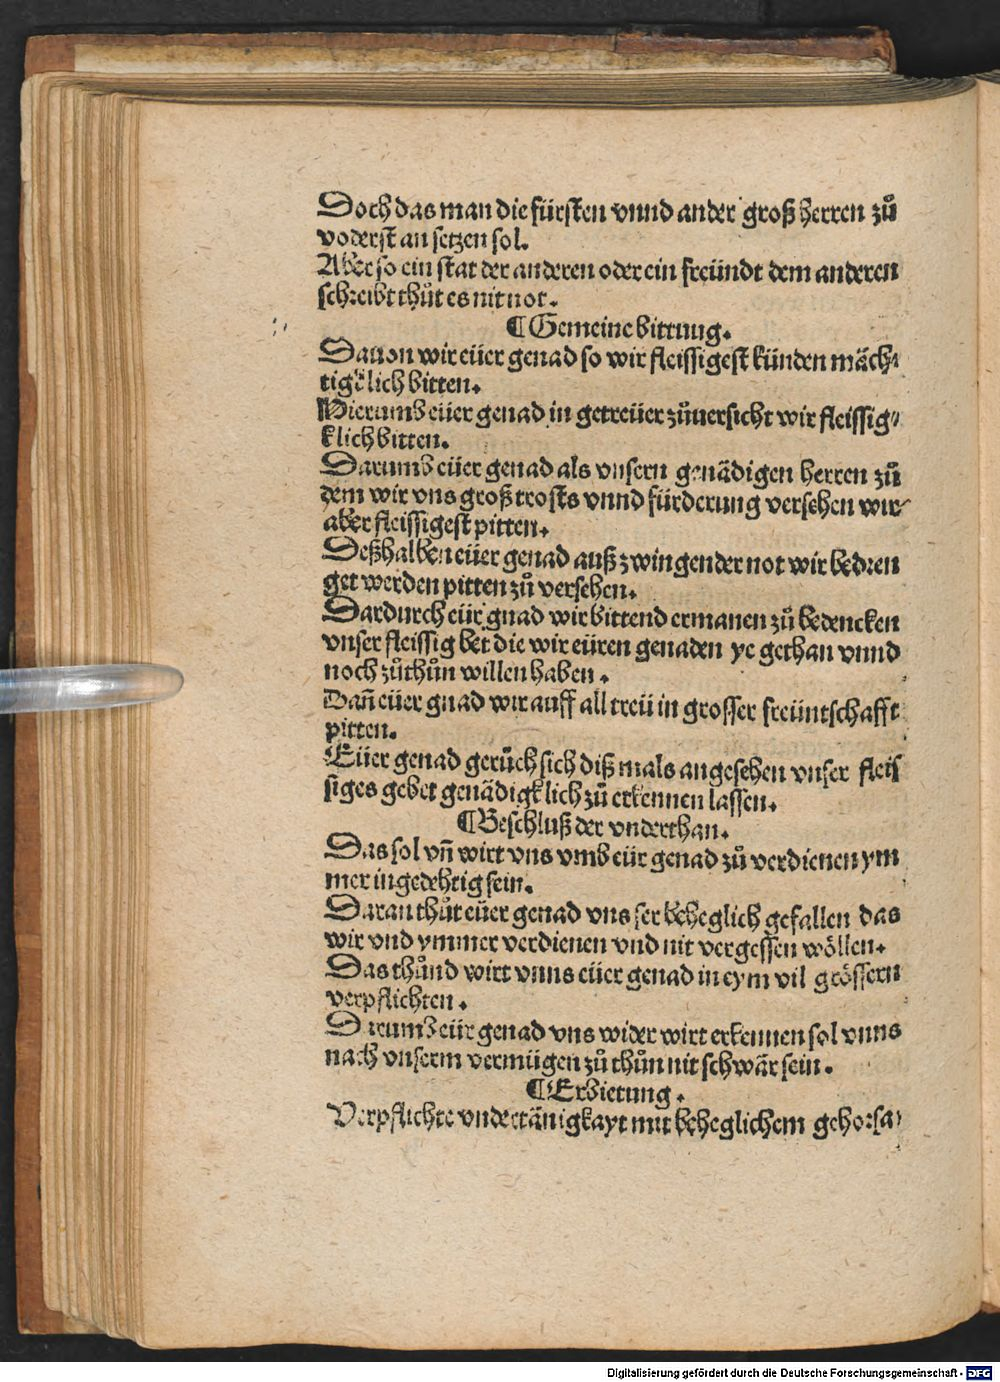 Doch das man die fürsten vnnd ander groß herren zů
voderst an setzen sol.
Aber so ein stat der anderen oder ein freündt dem anderen
schreibt thůt es nit not.
¶ Gemeine bittung.
Dauon wir eüer genad so wir fleissigest künden mäch⸗
tigklich bitten.
Hierumb eüer genad in getreüer zůuersicht wir fleissig⸗
klich bitten.
Darumb eüer genad als vnsern genädigen herren zů
dem wir vns groß trosts vnnd fürderung versehen wir
aber fleissigest pitten.
Deßhalben eüer genad auß zwingender not wir bedren
get werden pitten zů versehen.
Dardurch eür gnad wir bittend ermanen zů bedencken
vnser fleissig bet die wir eüren genaden ye gethan vnnd
noch zůthůn willen haben.
Dañ eüer gnad wir auff all treü in grosser freüntschafft
pitten.
Eüer genad gerůch sich diß mals angesehen vnser fleis
siges gebet genädigklich zů erkennen lassen.
¶ Beschluß der vnderthan.
Das sol vñ wirt vns vmb eür genad zů verdienen ym
mer ingedehtig sein.
Daran thůt eüer genad vns ser beheglich gefallen das
wir vnd ymmer verdienen vnd nit vergessen wöllen.
Das thůnd wirt vnns eüer genad in eym vil grössern
verpflichten.
Darumb eür genad vns wider wirt erkennen sol vnns
nach vnserm vermügen zů thůn nit schwär sein.
¶ Erbietung.
Verpflichte vndertänigkayt mit beheglichem gehorsa⸗
Digitalisierung gefördert durch die Deutsche Forschungsgemeinschaft - DFG